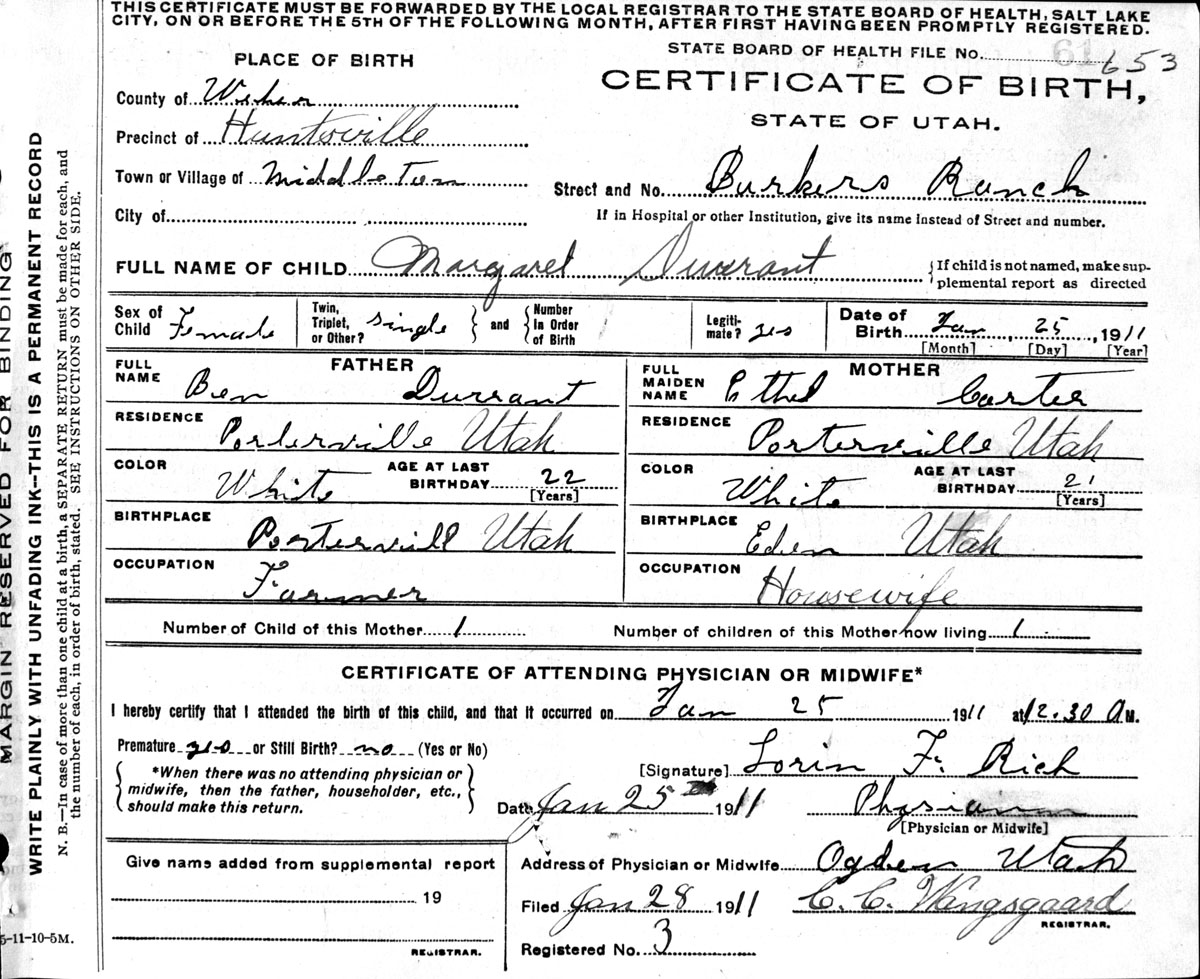 THIS CERTIFICATE MUST BE FORWARDED BY THE LOCAL REGISTRAR TO THE STATE BOARD OF HEALTH, SALT LAKE
CITY, ON OR BEFORE THE 5TH OF THE FOLLOWING MONTH, AFTER FIRST HAVING BEEN PROMPTLY REGISTERED.
STATE BOARD OF HEALTH FILE No. 61 653
PLACE OF BIRTH
CERTIFICATE OF BIRTH,
STATE OF UTAH.
County of Weber
Precinct of Huntsville
Town or Village of Middleton
Street and No. Burkers Ranch
City of
If in Hospital or other Institution, give its name instead of Street and number.
FULL NAME OF CHILD Margaret Durrant
{If child is not named, make sup-
plemental report as directed
Sex of Child Female
Twin, Triplet, or Other? single
} and {
Number in Order of Birth
Legiti-mate? yes
Date of Birth Jan 25, 1911
[Month] [Day] [Year]
FATHER
FULL NAME Ben Durrant
RESIDENCE Porterville Utah
COLOR White AGE AT LAST BIRTHDAY 22 [Years]
BIRTHPLACE Portervill Utah
OCCUPATION Farmer
MOTHER
FULL MAIDEN NAME Ethel Carter
RESIDENCE Porterville Utah
COLOR White AGE AT LAST BIRTHDAY 21 [Years]
BIRTHPLACE Eden Utah
OCCUPATION Housewife
Number of Child of this Mother 1 Number of children of this Mother now living 1
CERTIFICATE OF ATTENDING PHYSICIAN OR MIDWIFE*
I hereby certify that I attended the birth of this child, and that it occurred on Jan 25 1911 at 12.30 A M.
Premature yes or Still Birth? no (Yes or No)
{*When there was no attending physician or
midwife, then the father, householder, etc.,
should make this return.}
[Signature] Lorin F. Rich
Date Jan 25 1911 Physician
[Physician or Midwife]
Give name added from supplemental report
19
REGISTRAR.
Address of Physician or Midwife Ogden Utah
Filed Jan 28 1911 C. C. Wangsgaard
REGISTRAR.
Registered No. 3
MARGIN RESERVED FOR BINDING
WRITE PLAINLY WITH UNFADING INK—THIS IS A PERMANENT RECORD
N. B.—In case of more than one child at a birth, a SEPARATE RETURN must be made for each, and
the number of each, in order of birth, stated. SEE INSTRUCTIONS ON OTHER SIDE.
5-11-10-5M.